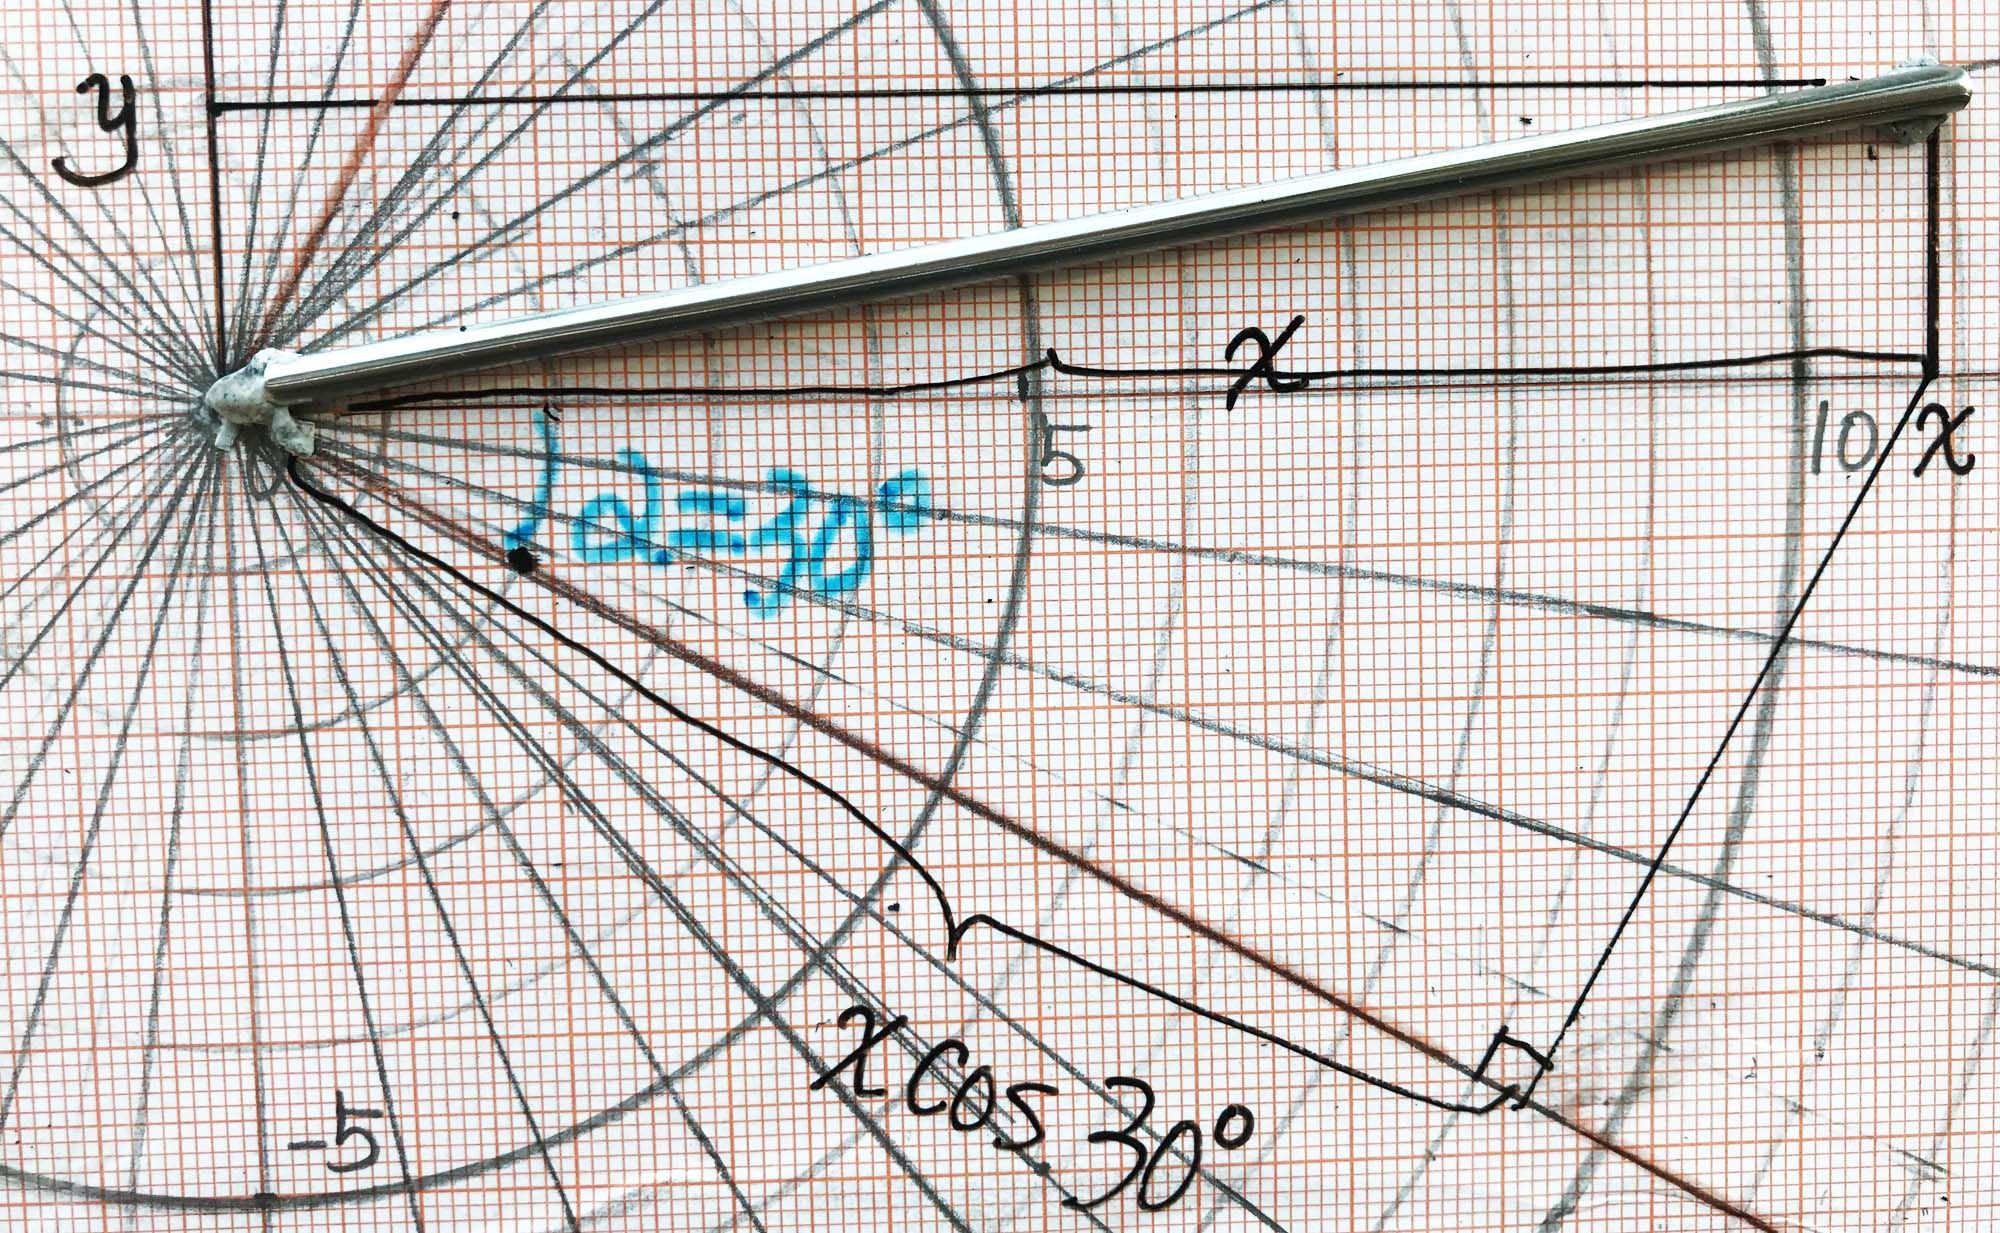 y
x
0
5
10
x
α=30°
x cos 30°
-5